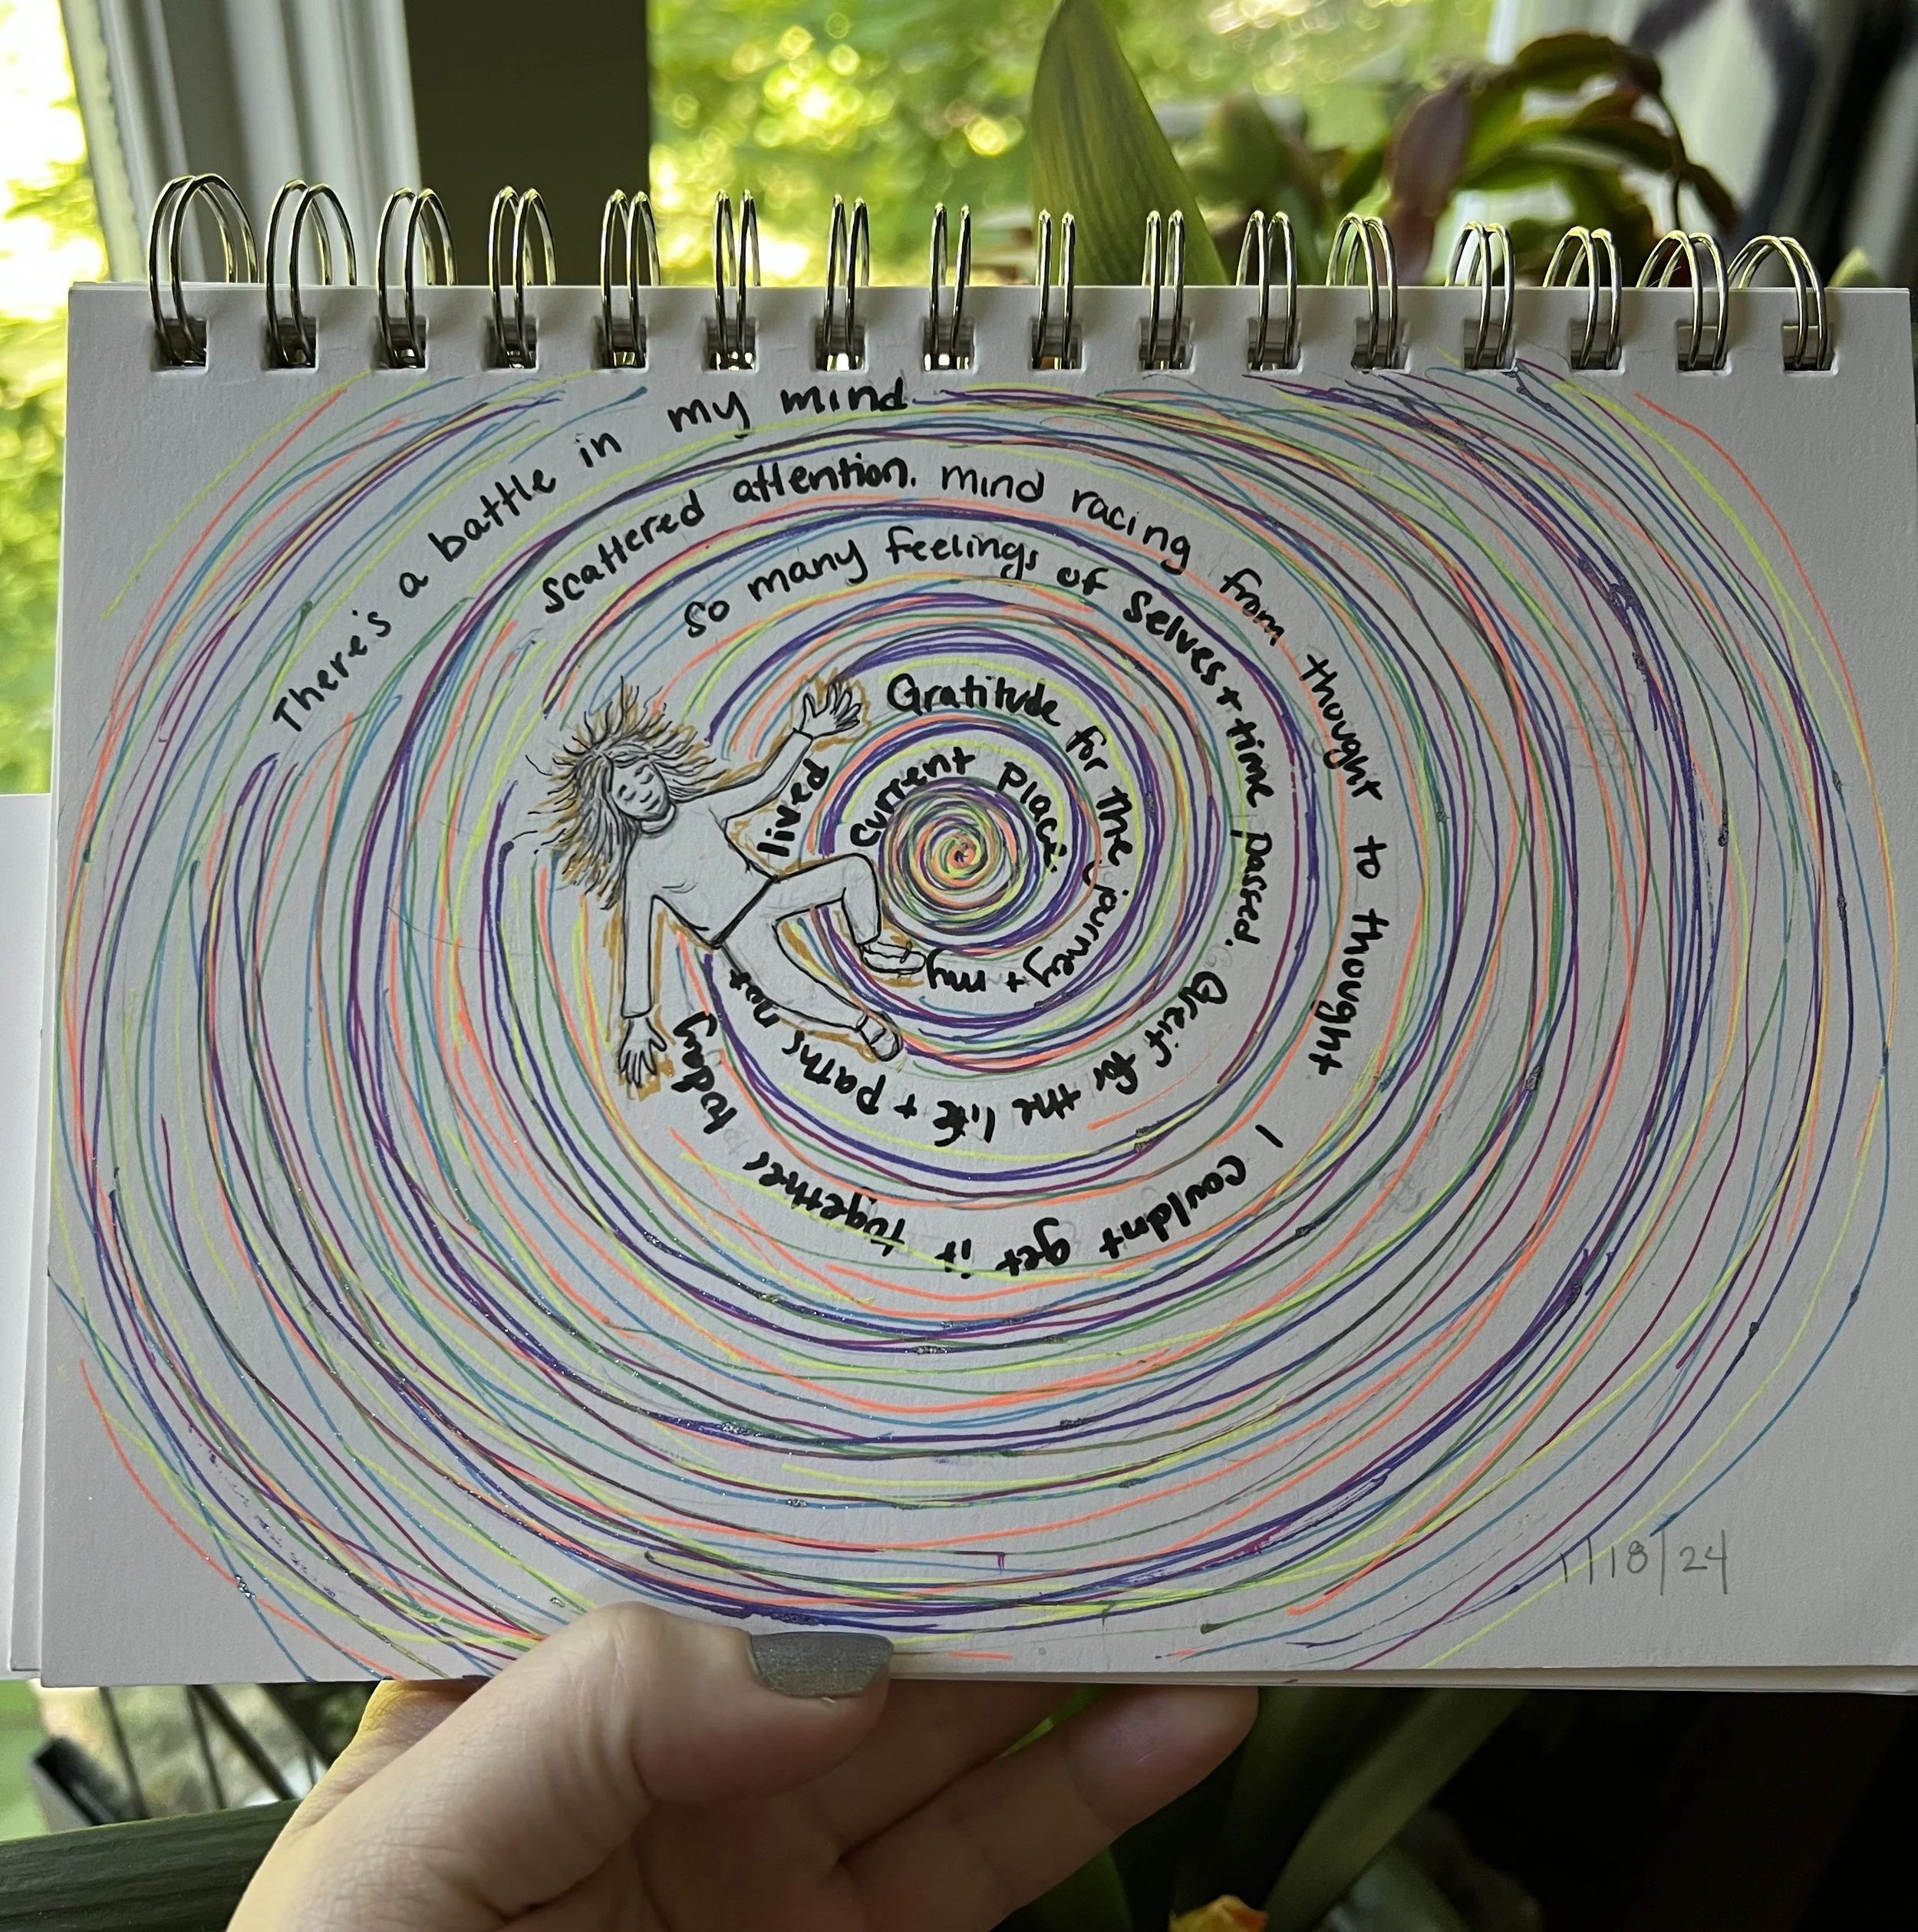 There's a battle in my mind
scattered attention. mind racing from thought to thought
I couldnt get it together today
so many feelings of selves + time passed. Greif for the life + paths not lived
Gratitude for the journey + my current place.
1/18/24